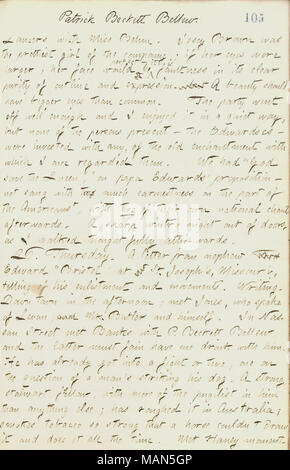 Patrick Beckett Bellew.
105
Lancers with Miss Behm. Josey Brown was
the prettiest girl of the company; if her eyes were
larger, her face would in its clear
purity of outline and expression. A beauty should
have bigger eyes than common. The party went
off well enough and I enjoyed it in a quiet way,
but none of the persons present — the Edwardses —
were invested with any of the old enchantment with
which I once regarded them. We had "God
save the Queen" on papa Edwards' proposition —
not sung with much earnestness on the part of
the Americans, their own national chant
afterwards. A sharp wintry night out of doors,
as I walked
15. Thursday. A letter from nephew
Edward "Bristol" at St Joseph's, Missouri,
telling of his enlistment and movements. Writing.
Down town in the afternoon; met Jones, who spoke
of Levan and Mr. Butler and himself. In Nas-
sau Street met Banks with P. Beckett Bellew
and the latter must fain have me drink with him.
He has already got into a fight or two, one on
the question of a man's striking his dog. A strong
stalwart fellow, with more of the pugilist in him
than anything else; has roughed it in Australia;
smokes tobacco so strong that a horse couldn't draw
it and does it all the time. Met Haney moment-